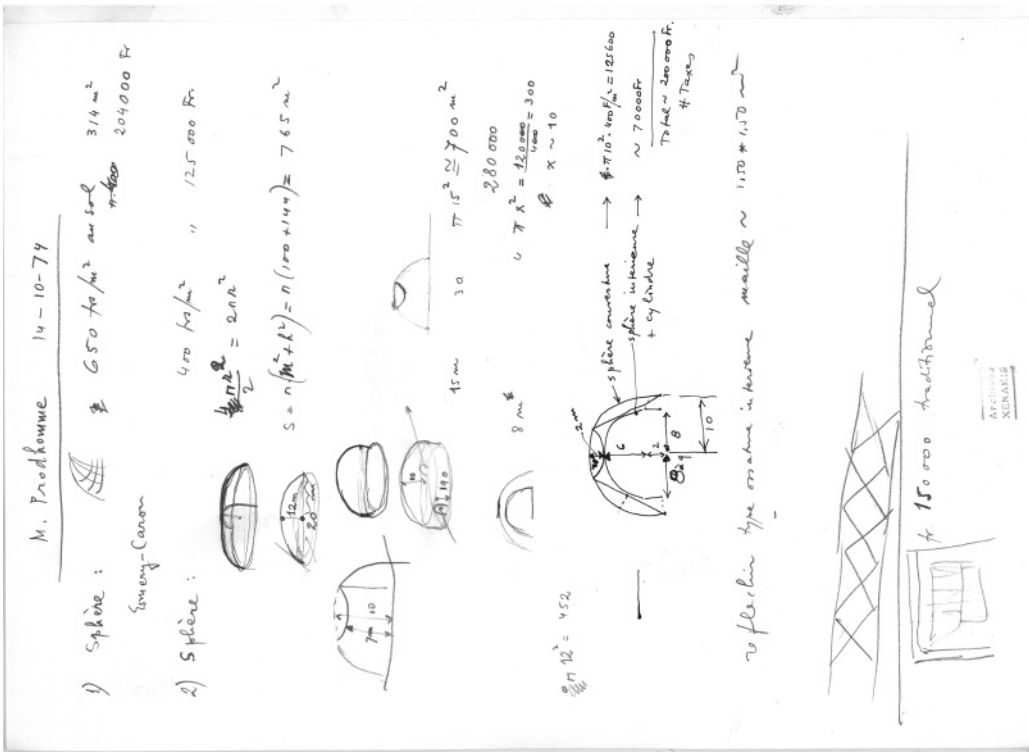 M. Prodhomme 14-10-74
1) Sphère : 650 frs/m² au sol 314 m²
204000 Fr
Emery-Caron
2) Sphère : 400 frs/m² " 125000 Fr.
= 2πr²
S = π(m²+h²) = π(100+144) = 765 m²
12m
20 m
7m 10
10
15m 30 π 15² ≃ 700 m²
280000
8 m 4 π x² = 120000/400 = 300
x ~ 10
π 12² = 452
2m
sphère couverture → π10². 400F/m² = 125600
sphère intérieure → ~ 70000Fr
+ cylindre
Total ~ 200000 Fr.
# Taxes
6
2
8
10
type ossature intérieure maille ~ 1,50 * 1,50 m²
fr. 150000 traditionnel
Archives
XENAKIS